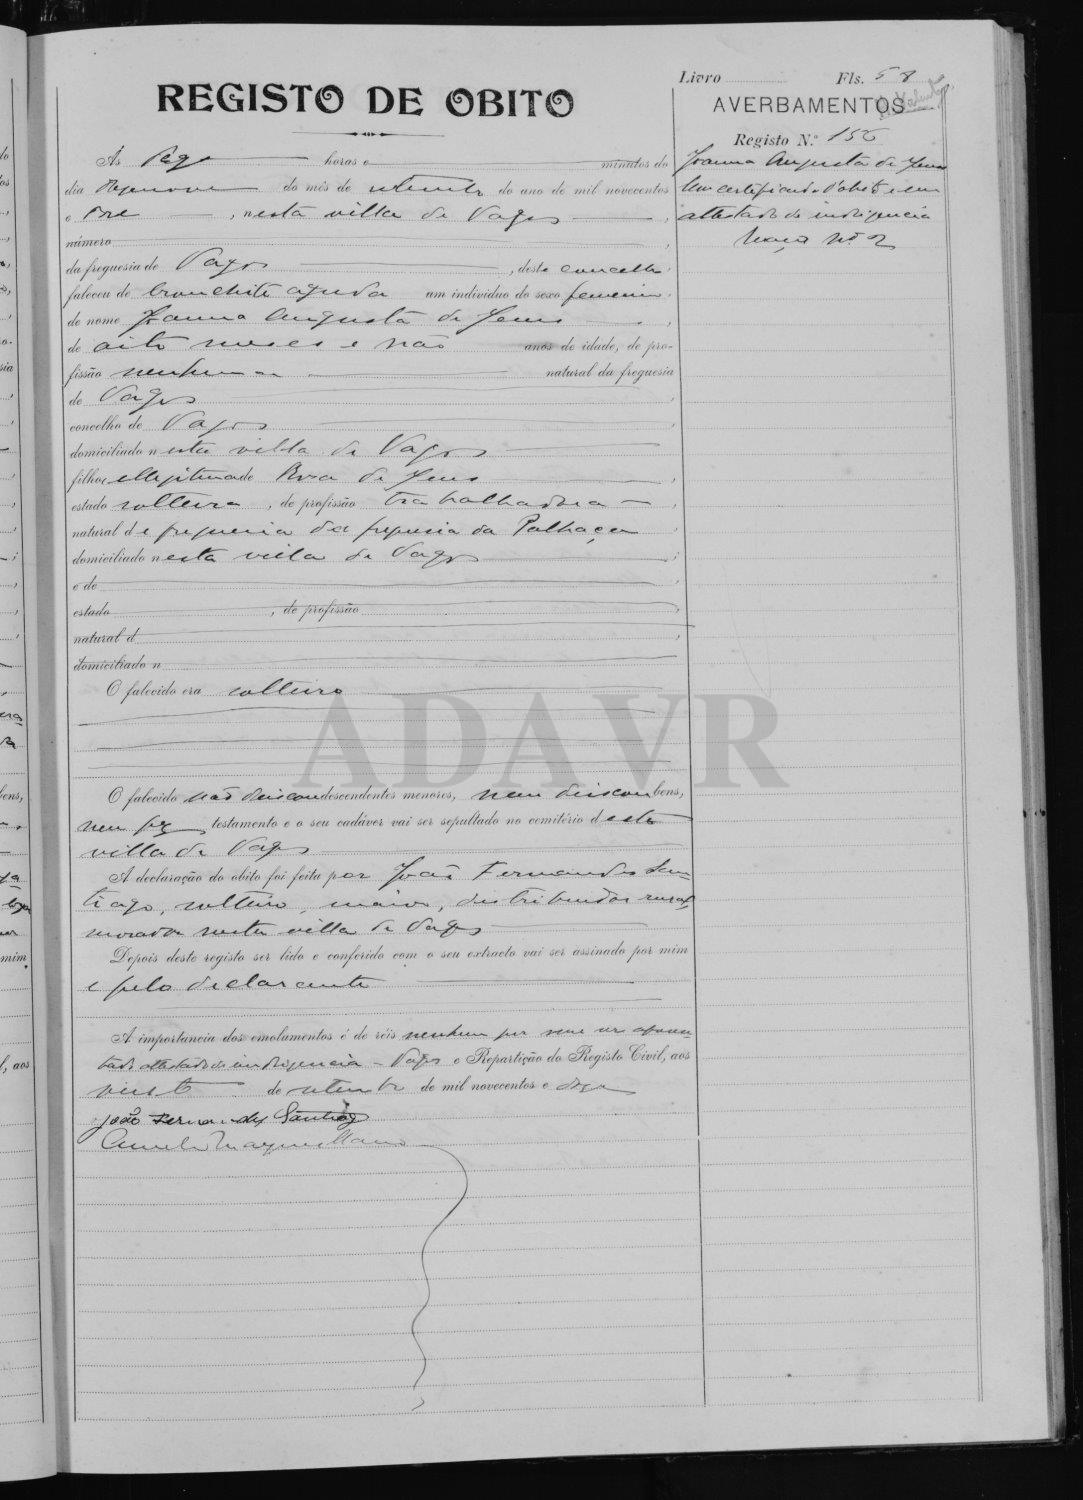 Livro Fls. 58
REGISTO DE OBITO
AVERBAMENTOS
Registo N.º
Joanna Augusta de Jesus
Um certificado d'obito e um
attestado de indigencia
Maço Nº 2
Ás horas e minutos do
dia dezenove do mês de setembro do ano de mil novecentos
e doze, nesta villa de Vagos,
número,
da freguesia de Vagos, deste concelho,
faleceu de bronchite aguda um individuo do sexo femenino,
de nome Joanna Augusta de Jesus,
de oito meses e não anos de idade, de pro-
fissão nenhuma natural da freguesia
de Vagos,
concelho de Vagos,
domiciliado nesta villa de Vagos
filha illegitima de Rosa de Jesus,
estado solteira, de profissão trabalhadora,
natural de freguesia da freguesia da Palhaça
domiciliado nesta villa de Vagos;
e de,
estado, de profissão,
natural d,
domiciliado n
O falecido era solteiro
ADAVR
O falecido não deixou descendentes menores, nem deixou bens,
nem fez testamento e o seu cadáver vai ser sepultado no cemitério desta
villa de Vagos
A declaração do obito foi feita por João Fernandes San-
tiago, solteiro, maior, distribuidor rural
morador nesta villa de Vagos
Depois deste registo ser lido e conferido com o seu extracto vai ser assinado por mim
e pelo declarante
A importancia dos emolumentos é de réis nenhum por me ser apresen-
tado attestado de indigencia - Vagos e Repartição do Registo Civil, aos
vinte de setembro de mil novecentos e doze
João Fernandes Santiago